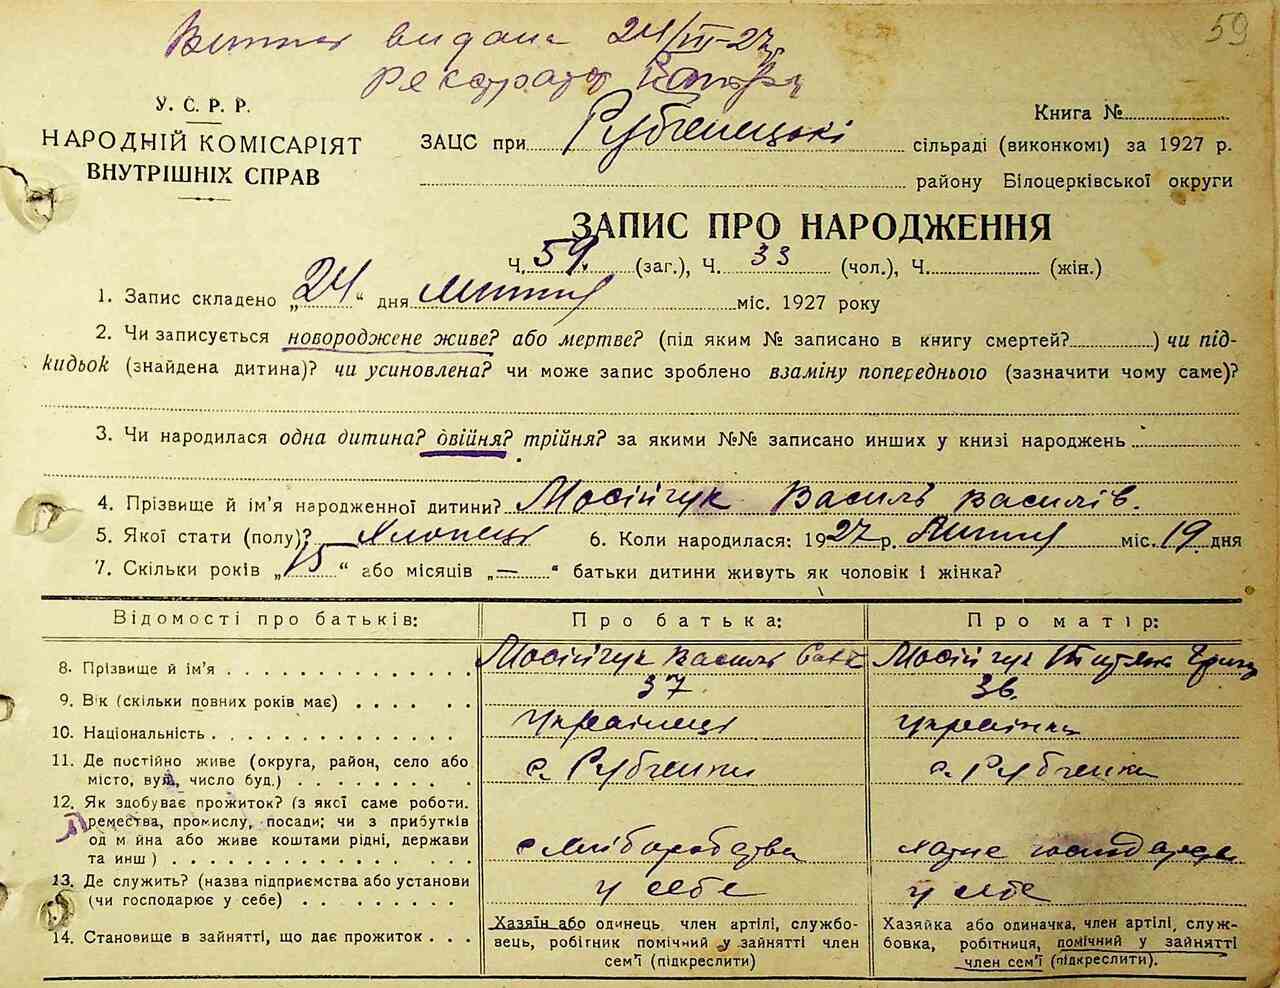 59
Виписка видана 24/III-27р.
У. С. Р. Р.
НАРОДНІЙ КОМІСАРІЯТ
ВНУТРІШНІХ СПРАВ
Книга №
ЗАЦС при Рубченецькі сільраді (виконкомі) за 1927 р.
району Білоцерківської округи
ЗАПИС ПРО НАРОДЖЕННЯ
Ч. 59. (заг.), Ч. 33 (чол.), Ч. (жін.)
1. Запис складено „24“ дня лютня міс. 1927 року
2. Чи записується новороджене живе? або мертве? (під яким № записано в книгу смертей? ) чи під-
кидьок (знайдена дитина)? чи усиновлена? чи може запис зроблено взаміну попереднього (зазначити чому саме)?
3. Чи народилася одна дитина? двійня? трійня? за якими №№ записано инших у книзі народжень
4. Прізвище й ім'я народженної дитини? Мосійчук Василь Василів.
5. Якої стати (полу)? Хлопець 6. Коли народилася: 1927 р. Лютня міс. 19 дня
7. Скільки років „15“ або місяців „—“ батьки дитини живуть як чоловік і жінка?
Відомості про батьків: Про батька: Про матір:
8. Прізвище й ім'я Мосійчук Василь Мосійчук
9. Вік (скільки повних років має) 37 36.
10. Національність українець українка
11. Де постійно живе (округа, район, село або с. Рубченки с. Рубченки
місто, вул., число буд.)
12. Як здобуває прожиток? (з якої саме роботи.
ремества, промислу, посади; чи з прибутків
од майна або живе коштами рідні, держави хліборобства хатнє господарство
та инш)
13. Де служить? (назва підприємства або установи у себе у себе
(чи господарює у себе)
14. Становище в зайнятті, що дає прожиток
Хазяїн або одинець, член артілі, службо-
вець, робітник помічний у зайнятті член
сем'ї (підкреслити)
Хазяйка або одиначка, член артілі, служ-
бовка, робітниця, помічний у зайнятті
член сем'ї (підкреслити).